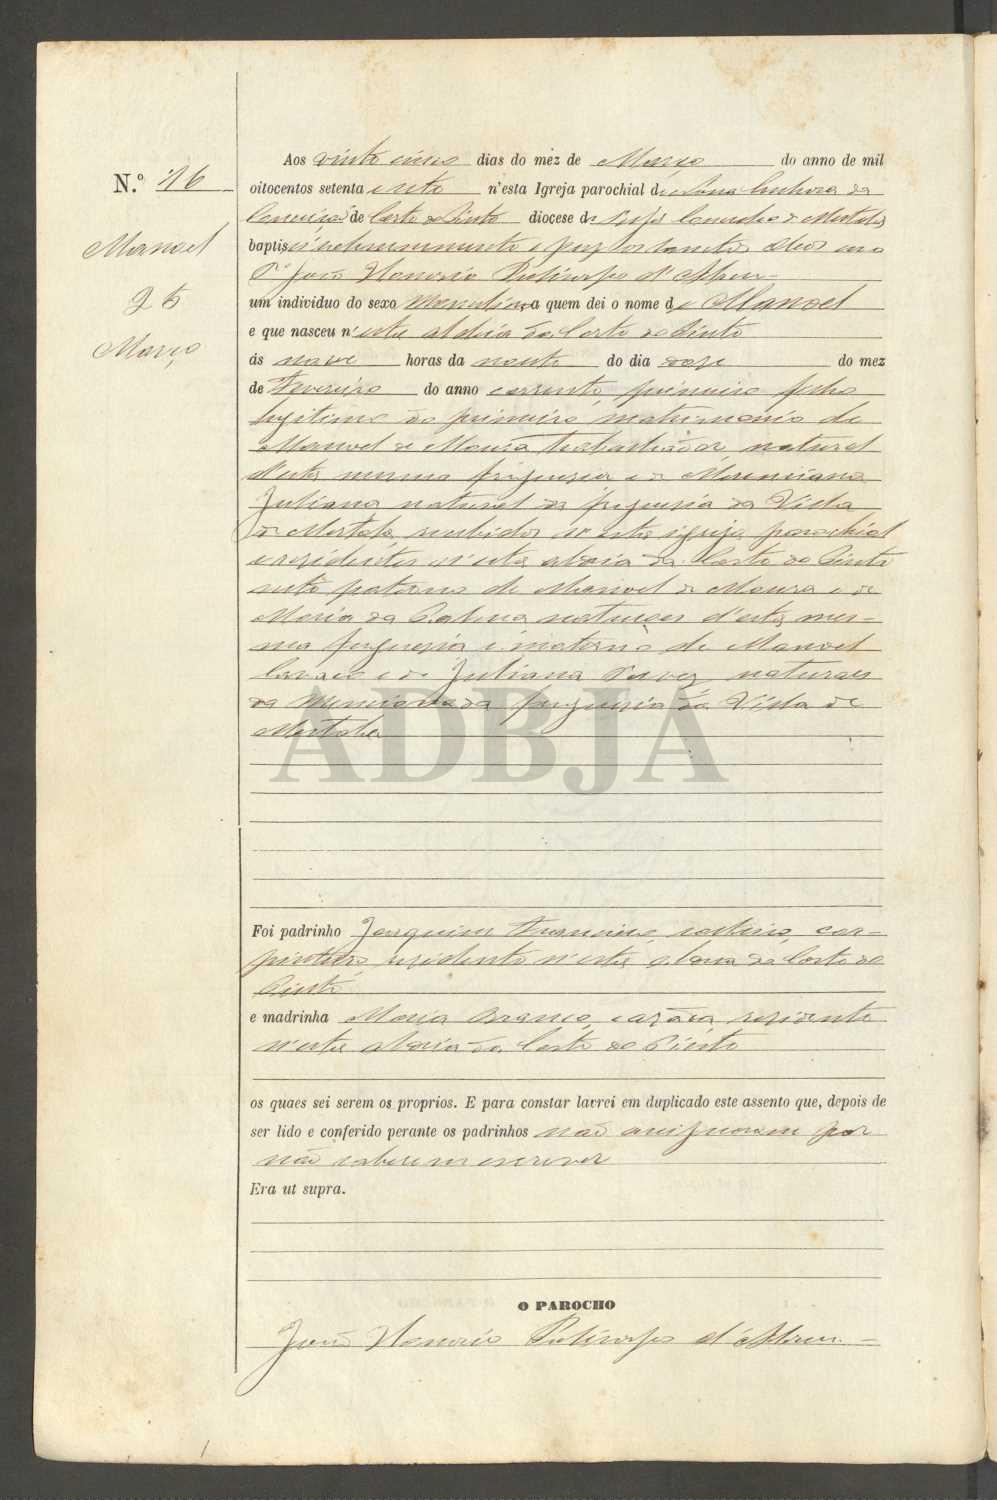 N.º 16
Manoel
25
Março
Aos vinte cinco dias do mez de Março do anno de mil
oitocentos setenta e oito n'esta Igreja parochial de Nossa Senhora da
Conceição de Corte do Pinto diocese de Beja Concelho de Mertola
baptisei solemnemente e puz os Santos Oleos eu o
P.e João Honorio Policarpo d'Abreu
um individuo do sexo Masculino a quem dei o nome de Manoel
e que nasceu n'esta aldeia da Corte do Pinto
ás nove horas da noute do dia doze do mez
de Fevereiro do anno corrente, primeiro filho
legitimo do primeiro matrimonio de
Manoel de Moura Trabalhador, natural
d'esta mesma freguesia e de
Juliana natural da freguesia da Villa
de Mertola recebidos n'esta igreja parochial
e residentes n'esta aldeia da Corte do Pinto
neto paterno de Manoel de Moura e de
Maria da naturaes d'esta mes-
ma freguesia e materno de Manoel
e de Juliana naturaes
da mencionada freguesia da Villa de
Mertola
ADBJA
Foi padrinho Joaquim Francisco, solteiro, car-
pinteiro, residente n'esta aldeia da Corte do
Pinto
e madrinha Maria casada, residente
n'esta aldeia da Corte do Pinto
os quaes sei serem os proprios. E para constar lavrei em duplicado este assento que, depois de
ser lido e conferido perante os padrinhos não assignaram por
não saberem escrever
Era ut supra.
O PAROCHO
João Honorio Policarpo d'Abreu